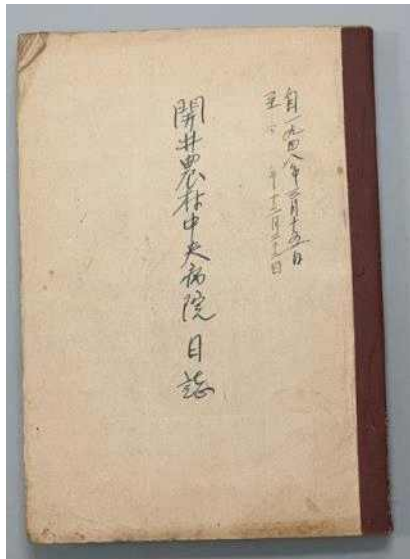 自一九四八年一月十五日
至〃年十二月三十一日
開井農林中央病院日誌